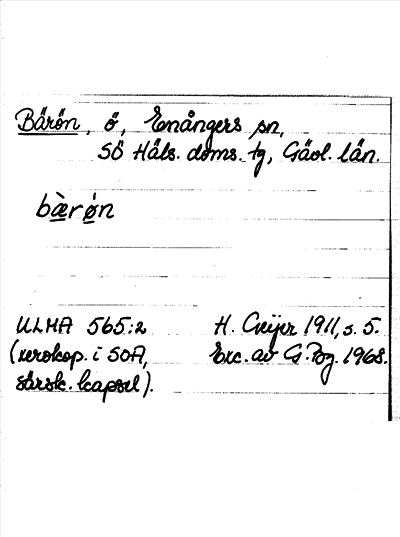 Bärön, ö, Enångers sn,
SÖ Häls. doms. tg, Gävl. län.
bæ̀rø̀n
ULMA 565:2 H. Geijer 1911, s. 5.
(xerokop. i SOA, Exc. av G. Bg. 1968.
särsk. kapsel).